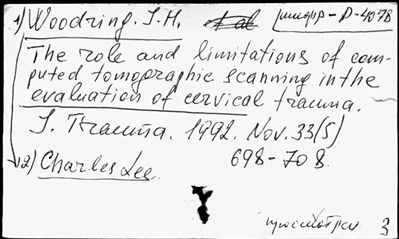 1) Woodring. J.H. et al шифр - P-4078
The role and limitations of com-
puted tomographic scanning in the
evaluation of cervical trauma.
J. Trauma. 1992. Nov. 33(5)
698-708
2) Charles Lee.
просмотрен 3